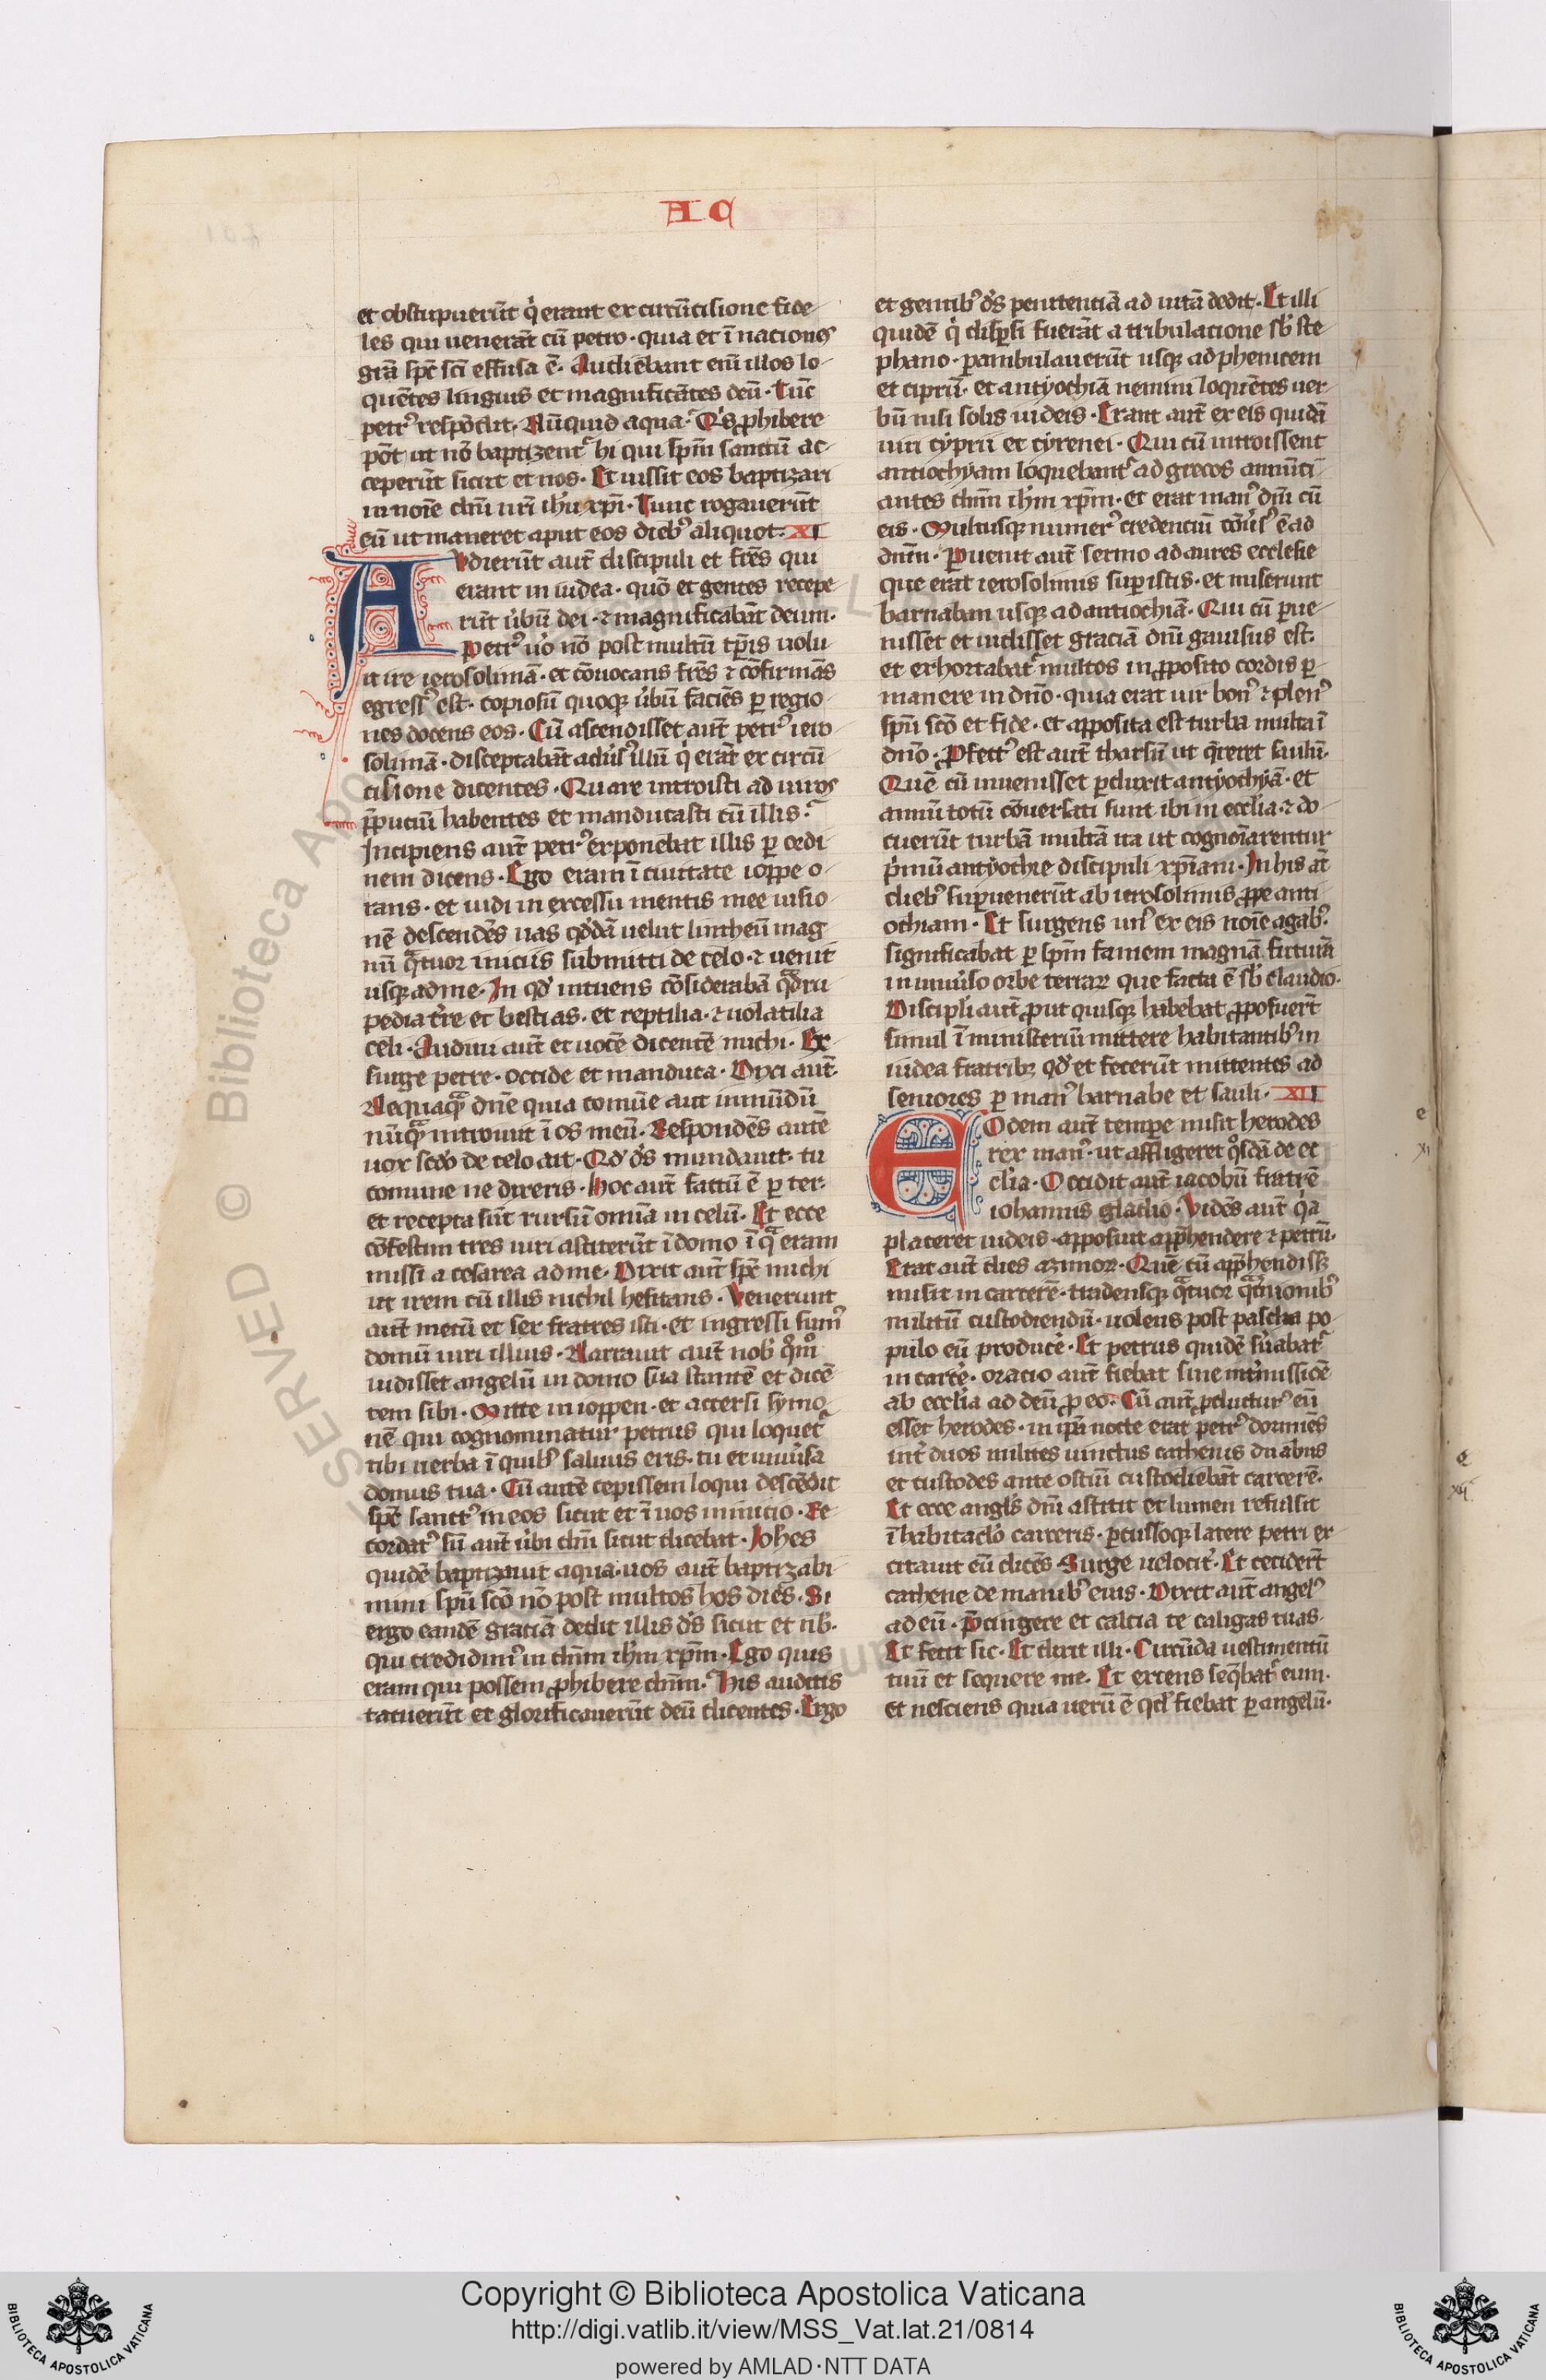 AC
et obstupuerūt q̇ erant ex circūcisione fide
les qui venerāt cū petro · quia et ī naciones
grā spc̄ sc̄i effusa ē · Audiebant em̄ illos lo
quētes linguis et magnificātes deū · Tūc
petrꝰ respōdit · Nūnquid aqua · Qͥs ꝓhibere
pōt ut nō baptizentᷣ hi qui sp̄m sanctū ac
ceperūt sicut et nos · Et iussit eos baptizari
in noīe dn̄i nr̄i ihū xp̄i · Tunc rogauerūt
eū ut maneret aput eos diebꝰ aliquot · XI
Audierūt aut̄ discipuli et fr̄es qui
erant in iudea · quō et gentes recepe
rūt u̇bū dei · ⁊ magnificabāt deum ·
Petrꝰ u̇o nō post multū tp̄is uolu
it ire ierosolimā · et cōuocans fr̄es ⁊ cōfirmās
egressꝰ est · copiosū quoqꝫ u̇bū faciēs ꝑ regio
nes docens eos · Cū ascendisset aut̄ petrꝰ iero
solimā · disceptabāt adu̇sꝰ illū q̇ erāt ex circū
cisione dicentes · Quare introisti ad uiros
p̄puciū habentes et manducasti cū illis ·
Incipiens aut̄ petrꝰ exponebat illis ꝑ ordi
nem dicens · Ego eram ī ciuitate ioppe o
rans · et uidi in excessu mentis mee uisio
nē descendēs uas qd̓dā uelut lintheū mag
nū qᷓtuor iniciis submitti de celo · ⁊ uenit
usqꝫ ad me · In qd̓ intuens cōsiderabā qᷓdru
pedia tr̄re et bestias · et reptilia · ⁊ uolatilia
celi · Audiui aut̄ et uocē dicentē michi · Ex
surge petre · occide et manduca · Dixi aut̄ ·
Nequaqᷓ dn̄e quia comūe aut inmūdū
nūqᷓ introiuit ī os meū · Respondēs autē
uox scd̓o de celo ait · Qd̓ d̓s mundauit · tu
comune ne dixeris · Hoc aut̄ factū ē ꝑ ter ·
et recepta sūt rursū omīa in celū · Et ecce
cōfestim tres uiri astiterūt ī domo ī qᷓ eram
missi a cesarea ad me · Dixit aut̄ spc̄ michi
ut irem cū illis nichil hesitans · Venerunt
aut̄ mecū et sex fratres isti · et ingressi sumꝰ
domū uiri illius · Narrauit aut̄ nob̓ qͦmͦ
uidisset angelū in domo sua stantē et dicē
tem sibi · Mitte in ioppen · et accersi symo
nē qui cognominatur petrus qui loquetᷣ
tibi uerba ī quibꝰ saluus eris · tu et uniu̇sa
domus tua · Cū autē cepissem loqui descēdit
spc̄ sanctꝰ in eos sicut et ī nos in inicio · Re
cordatꝰ sū aut̄ u̇bi dn̄i sicut dicebat · Joh̓es
quidē baptizauit aqua · uos aut̄ baptizabi
mini spū scō nō post multos hos dies · Si
ergo eandē graciā dedit illis d̓s sicut et nb̓ ·
qui credidimꝰ in dn̄m ih̄m xp̄m · Ego quis
eram qui possem ꝓhibere dn̄m · His auditis
tacuerūt et glorificauerūt deū dicentes · Ergo
et gentibꝰ d̓s penitenciā ad uitā dedit · Et illi
quidē q̇ disꝑsi fuerāt a tribulacione sb̓ ste
phano · ꝑambulauerūt usqꝫ ad phenicem
et ciprū · et antyochiā nemini loquētes uer
bū nisi solis iudeis · Erant aut̄ ex eis quidā
uiri cyprii et cyrenei · Qui cū introissent
antiochyam loquebantᷣ ad grecos annūci
antes dn̄m ih̄m xp̄m · et erat manꝰ dn̄i cū
eis · Multusqꝫ numerꝰ credenciū cōu̇sꝰ ē ad
dn̄m · Ꝑuenit aut̄ sermo ad aures ecclesie
que erat ierosolimis suꝑ istis · et miserunt
barnaban usqꝫ ad antiochiā · Qui cū ꝑue
nisset et uidisset graciā dn̄i gauisus est ·
et exhortabatᷣ multos in ꝓposito cordis ꝑ
manere in dn̄o · quia erat uir bonꝰ ⁊ plenꝰ
spū scō et fide · et apposita est turba multa ī
dn̄o · Ꝓfectꝰ est aut̄ tharsū ut q̄reret saulū ·
Quē cū inuenisset ꝑduxit antyochyā · et
annū totū cōuersati sunt ibi in ecclīa · ⁊ do
cuerūt turbā multā ita ut cognoīarentur
p̓mū antyochie discipuli xp̄iani · In his at̄
diebꝰ suꝑuenerūt ab ierosolimis ꝓphe anti
ochiam · Et surgens unꝰ ex eis noīe agabꝰ
significabat ꝑ sp̄m famem magnā futurā
in uniu̇so orbe terraꝝ que facta ē sb̓ claudio ·
Discipl̓i aut̄ ꝓut quisqꝫ habebat ꝓposuer̄t
simul ī ministeriū mittere habitantibꝰ in
iudea fratribꝫ qd̓ et fecerūt mittentes ad
seniores ꝑ manꝰ barnabe et sauli · XII
Eodem aut̄ temꝑe misit herodes
rex manꝰ · ut affligeret qͦsdā de ec
cl̓ia · Occidit aut̄ iacobū fratrē
iohannis gladio · Vidēs aut̄ qͥa
placeret iudeis · apposuit app̄hendere ⁊ petrū ·
Erat aut̄ dies azimoꝝ · Quē cū app̄hendissꝫ
misit in carcerē · tradensqꝫ qᷓtuor qᷓt̓nionibꝰ
militū custodiendū · uolens post pascha po
pulo eū produce̓ · Et petrus quidē su̇abatᷣ
in carce̓ · oracio aut̄ fiebat sine int̓missiōe
ab eccl̓ia ad deū ꝓ eo · Cū aut̄ ꝓducturꝰ eū
esset herodes · in ip̄a nocte erat petrꝰ dormiēs
int̓ duos milites uinctus cathenis duabus
et custodes ante ostiū custodiebāt carcerē ·
Et ecce angl̓s dn̄i astitit et lumen refulsit
ī habitacl̓o carceris · ꝑcussoqꝫ latere petri ex
citauit eū dicēs Surge uelocit̓ · Et cecider̄t
cathene de manibꝰ eius · Dixit aut̄ angelꝰ
ad eū · P̄cingere et calcia te caligas tuas ·
Et fecit sic · Et dixit illi · Circūda uestimentū
tuū et sequere me · Et exiens seq̄batᷣ eum ·
et nesciens quia uerū ē qd̓ fiebat ꝑ angelū ·
e
xi
e
xij
© Biblioteca Apo
SERVED
Copyright © Biblioteca Apostolica Vaticana
http://digi.vatlib.it/view/MSS_Vat.lat.21/0814
powered by AMLAD·NTT DATA
BIBLIOTECA APOSTOLICA VATICANA
BIBLIOTECA APOSTOLICA VATICANA